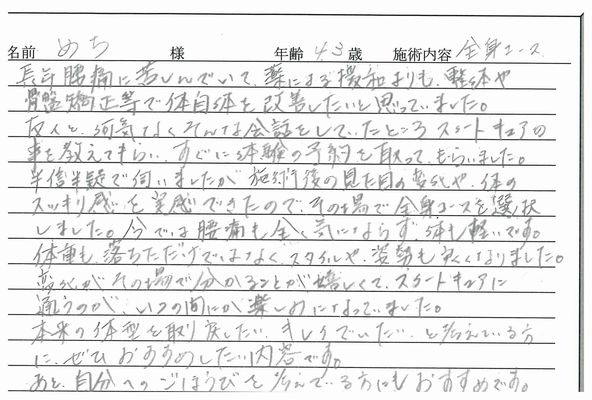 名前 めち 様 年齢 43歳 施術内容 全身コース
長年腰痛に苦しんでいて、薬による緩和よりも、整体や
骨盤矯正等で体自体を改善したいと思っていました。
友人と、何気なくそんな会話をしていたところスタートキュアの
事を教えてもらい、すぐに体験の予約を取ってもらいました。
半信半疑で伺いましたが施術後の見た目の変化や、体の
スッキリ感を実感できたので、その場で全身コースを選択
しました。今では腰痛も全く気にならず体も軽いです。
体重も落ちただけではなく、スタイルや、姿勢も良くなりました。
変化がその場で分かることが嬉しくて、スタートキュアに
通うのが、いつの間にか楽しみになっていました。
本来の体型を取り戻したい、キレイでいたい、と考えている方
に、ぜひおすすめしたい内容です。
あと、自分へのごほうびを考えている方にもおすすめです。